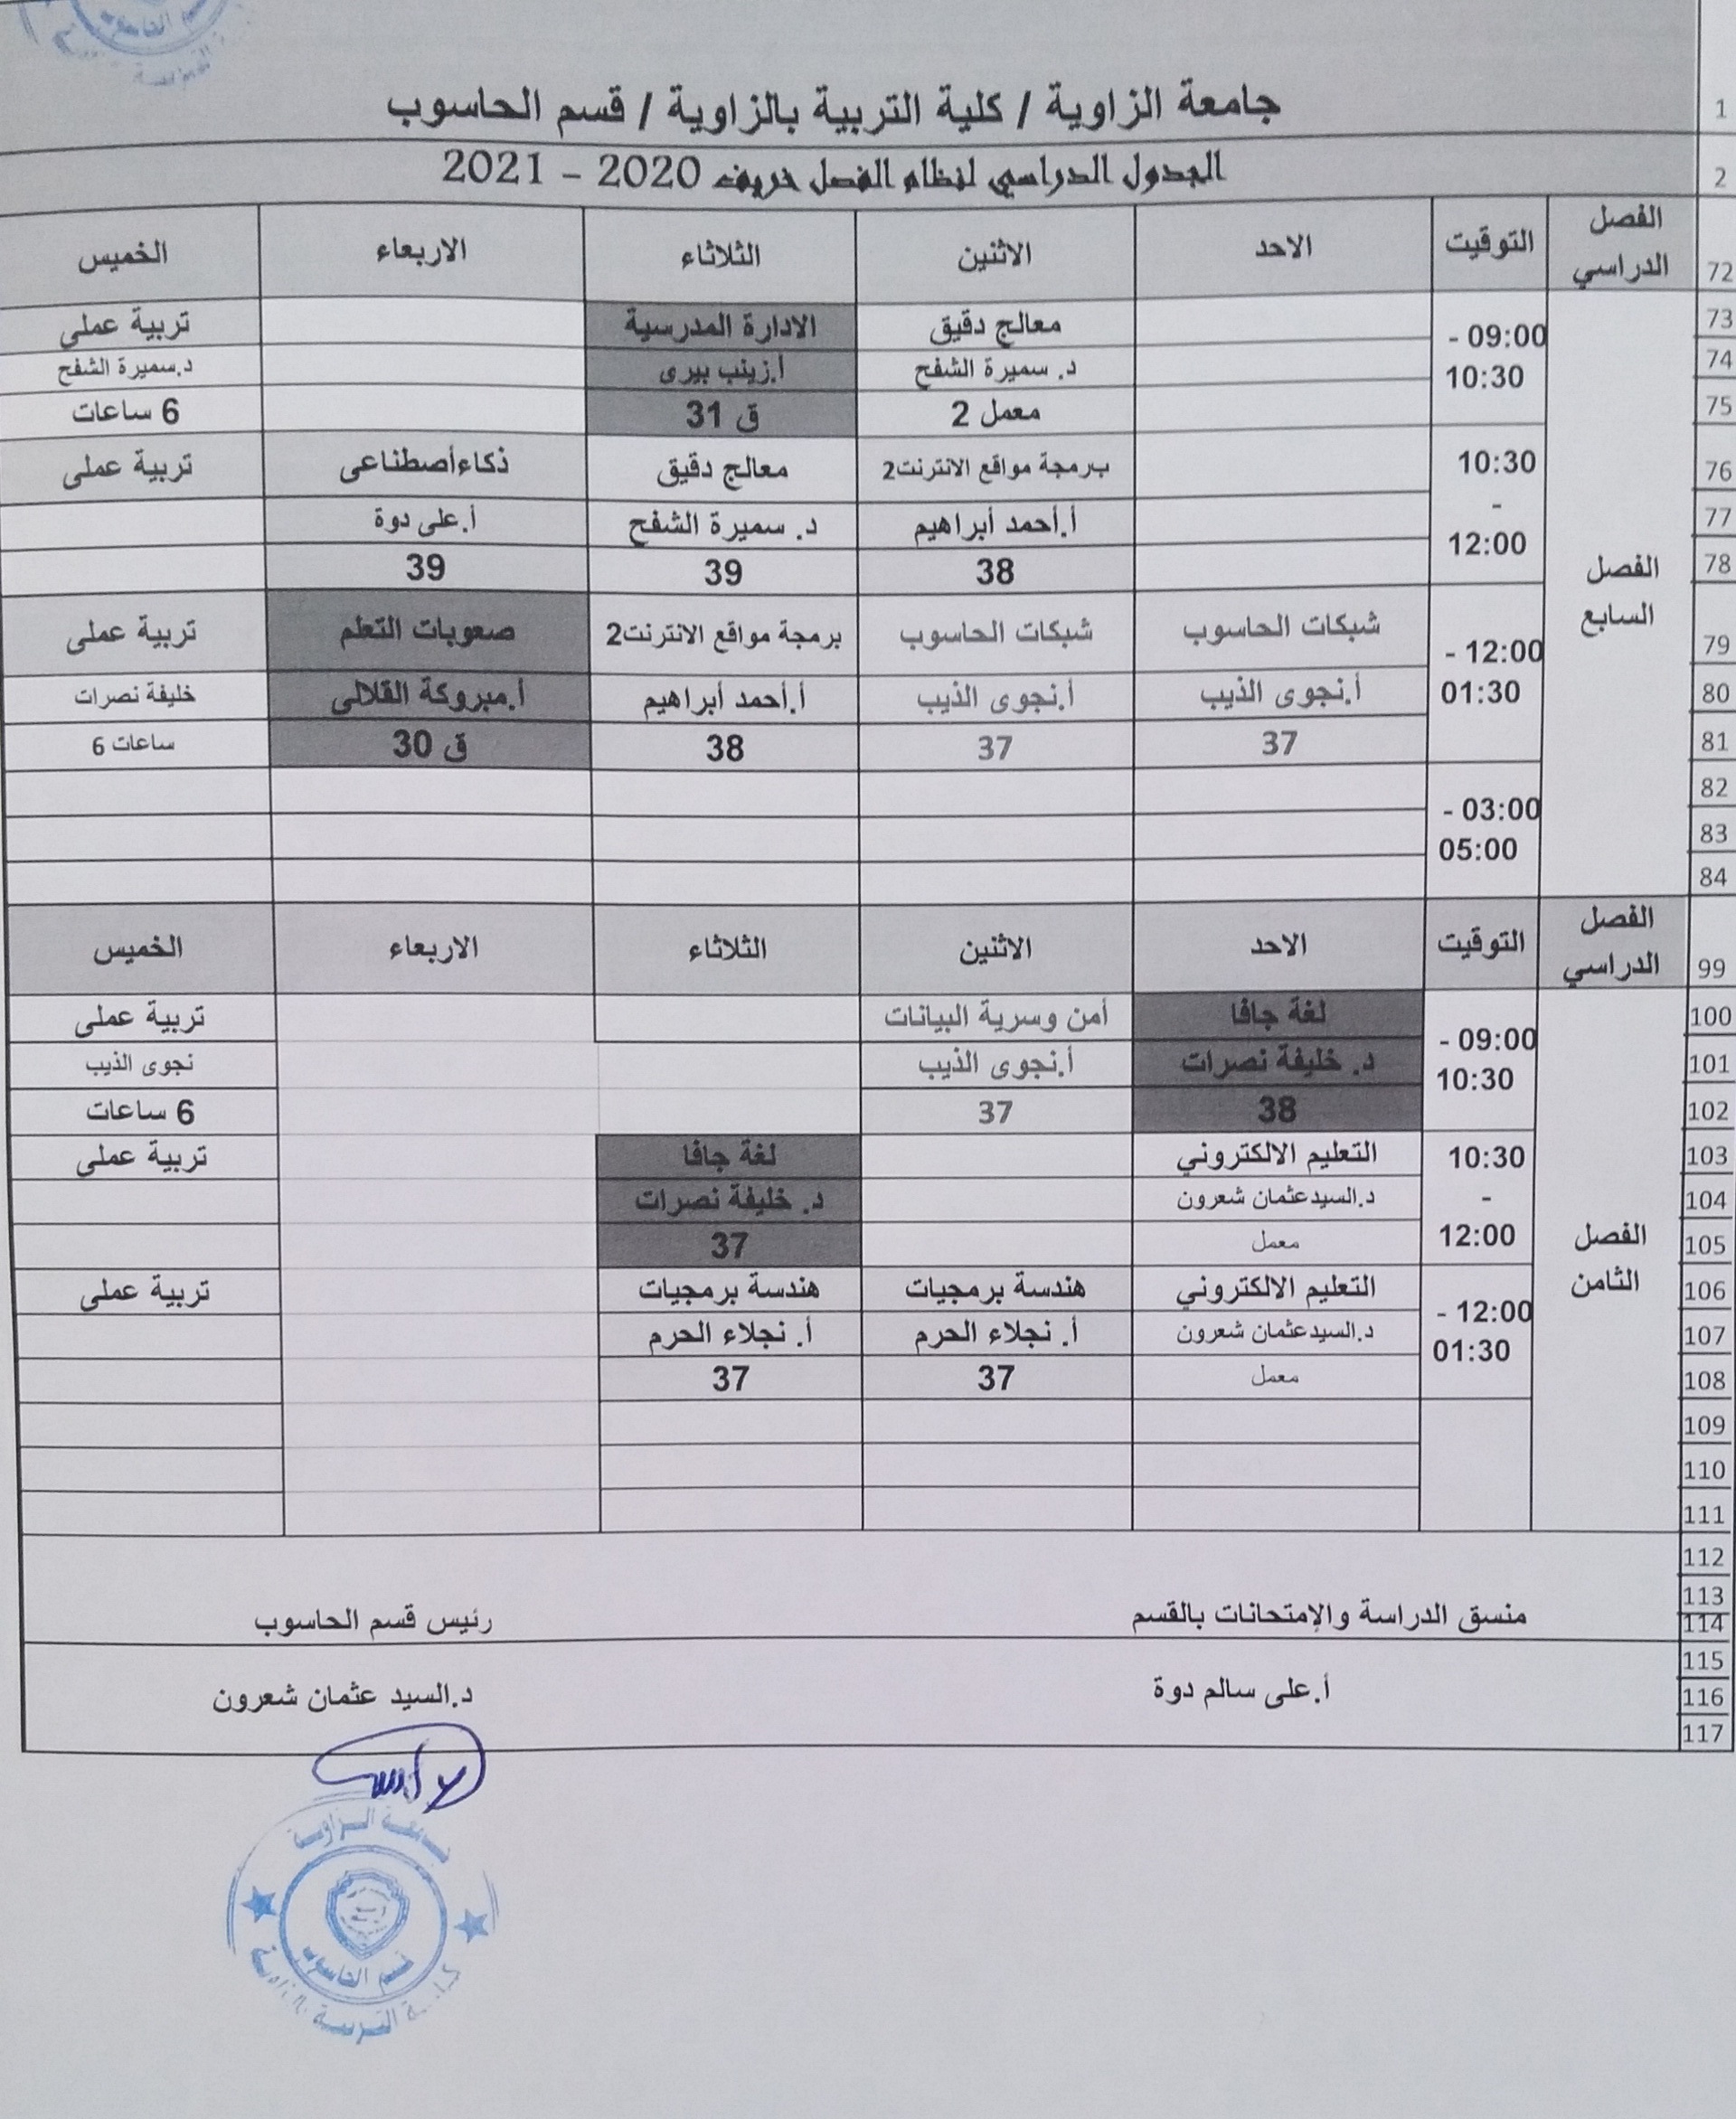 جامعة الزاوية / كلية التربية بالزاوية / قسم الحاسوب 1
الجدول الدراسي لنظام الفصل خريف 2020 - 2021 2
الفصل الدراسي التوقيت الاحد الاثنين الثلاثاء الاربعاء الخميس 72
الفصل السابع
09:00 - 10:30
معالج دقيق الادارة المدرسية تربية عملى 73
د. سميرة الشفح أ.زينب بيرى د.سميرة الشفح 74
معمل 2 ق 31 6 ساعات 75
10:30 - 12:00
برمجة مواقع الانترنت2 معالج دقيق ذكاءأصطناعى تربية عملى 76
أ.أحمد أبراهيم د. سميرة الشفح أ.على دوة 77
38 39 39 78
12:00 - 01:30
شبكات الحاسوب شبكات الحاسوب برمجة مواقع الانترنت2 صعوبات التعلم تربية عملى 79
أ.نجوى الذيب أ.نجوى الذيب أ.أحمد أبراهيم أ.مبروكة القلالى خليفة نصرات 80
37 37 38 ق 30 ساعات 6 81
03:00 - 05:00
82
83
84
الفصل الدراسي التوقيت الاحد الاثنين الثلاثاء الاربعاء الخميس 99
الفصل الثامن
09:00 - 10:30
لغة جافا أمن وسرية البيانات تربية عملى 100
د. خليفة نصرات أ.نجوى الذيب نجوى الذيب 101
38 37 6 ساعات 102
10:30 - 12:00
التعليم الالكتروني لغة جافا تربية عملى 103
د.السيدعثمان شعرون د. خليفة نصرات 104
معمل 37 105
12:00 - 01:30
التعليم الالكتروني هندسة برمجيات هندسة برمجيات تربية عملى 106
د.السيدعثمان شعرون أ. نجلاء الحرم أ. نجلاء الحرم 107
معمل 37 37 108
109
110
111
112
113
منسق الدراسة والإمتحانات بالقسم رئيس قسم الحاسوب 114
115
أ.على سالم دوة د.السيد عثمان شعرون 116
117
جامعة الزاوية
قسم الحاسوب
كلية التربية الزاوية